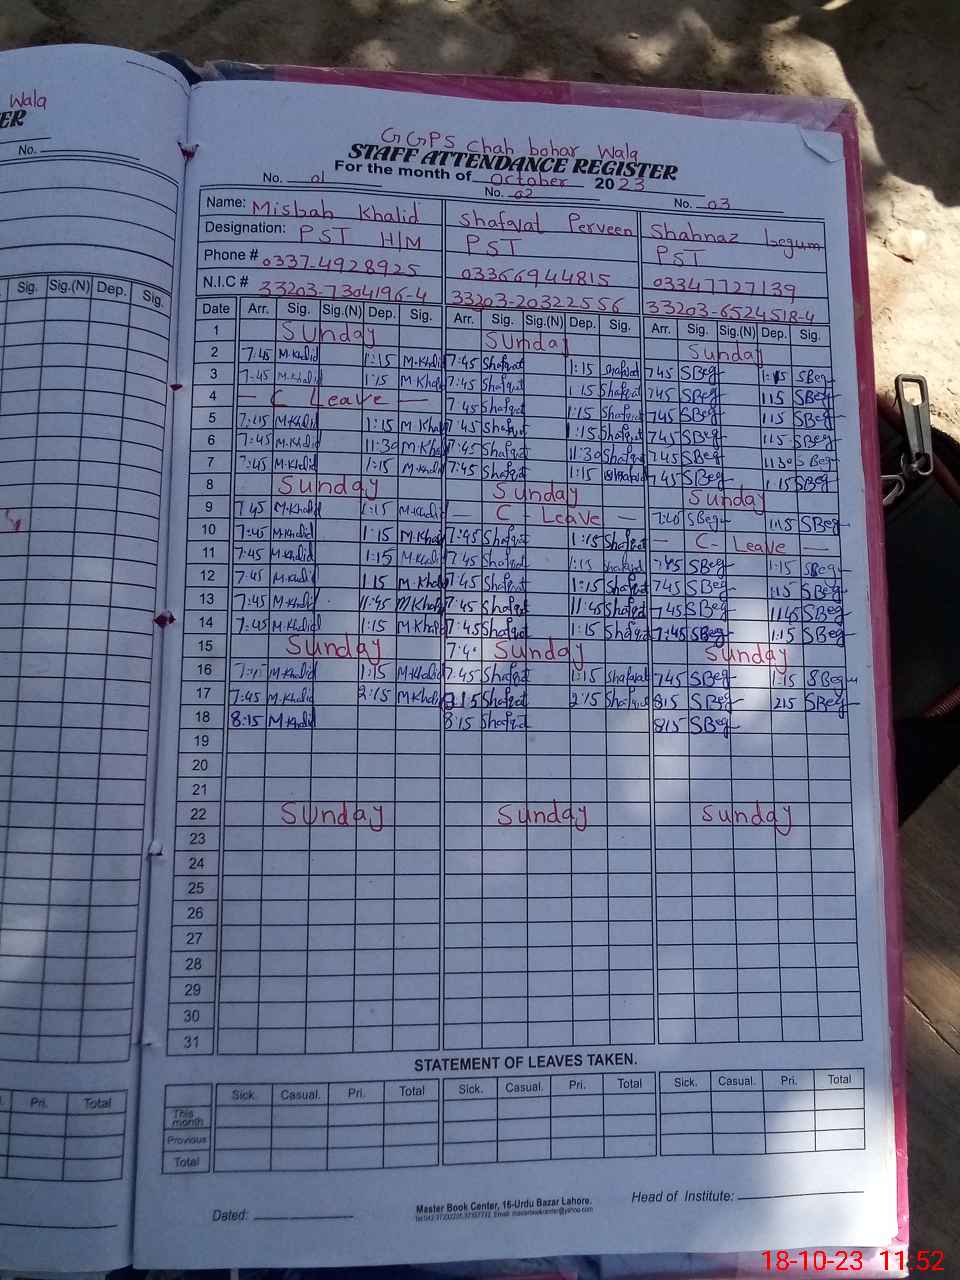 Wala
ER
No.
GGPS chah bahar Wala
STAFF ATTENDANCE REGISTER
For the month of October 2023
No. 01 No. 02 No. 03
Name: Misbah Khalid Shafqat Perveen Shahnaz begum
Designation: PST H/M PST PST
Phone # 0337-4928925 03366944815 03347727139
N.I.C # 33203-7304196-4 33203-20322556 33203-6524518-4
Sig. Sig.(N) Dep. Sig.
Date Arr. Sig. Sig.(N) Dep. Sig. Arr. Sig. Sig.(N) Dep. Sig. Arr. Sig. Sig.(N) Dep. Sig.
1 Sunday Sunday Sunday
2 7:45 M.Khalid 1:15 M.Khalid 7:45 Shafqat 1:15 Shafqat 745 SBeg 1:15 SBeg
3 7:45 M.Khalid 1:15 M.Khalid 7:45 Shafqat 1:15 Shafqat 745 SBeg 115 SBeg
4 — C Leave — 7 45 Shafqat 1:15 Shafqat 745 SBeg 115 SBeg
5 7:45 M.Khalid 1:15 M.Khalid 7:45 Shafqat 1:15 Shafqat 745 SBeg 115 SBeg
6 7:45 M.Khalid 11:30 M.Khalid 7:45 Shafqat 11:30 Shafqat 745 SBeg 1130 SBeg
7 7:45 M.Khalid 1:15 M.Khalid 7:45 Shafqat 1:15 745 SBeg 1:15 SBeg
8 Sunday Sunday Sunday
9 7 45 M.Khalid 1:15 M.Khalid — C - Leave — SBeg 1:15 SBeg
10 7:45 M.Khalid 1:15 M.Khalid 7:45 Shafqat 1:15 Shafqat — C- Leave —
11 7:45 M.Khalid 1:15 M.Khalid 7 45 Shafqat 1:15 Shafqat 745 SBeg 1:15 SBeg
12 7:45 M.Khalid 1 15 M.Khalid 7 45 Shafqat 1:15 Shafqat 745 SBeg 1:15 SBeg
13 7:45 M.Khalid 11:45 M.Khalid 7:45 Shafqat 11:45 Shafqat 745 SBeg 1145 SBeg
14 7:45 M.Khalid 1:15 M.Khalid 7:45 Shafqat 1:15 Shafqat 7:45 SBeg 1:15 SBeg
15 Sunday 7:4 Sunday Sunday
16 M.Khalid 1:15 M.Khalid 7:45 Shafqat 1:15 Shafqat 745 SBeg 1:15 SBeg
17 7:45 M.Khalid 2:15 M.Khalid 8:15 Shafqat 2:15 Shafqat 815 SBeg 215 SBeg
18 8:15 M.Khalid 8:15 Shafqat 815 SBeg
19
20
21
22 Sunday Sunday Sunday
23
24
25
26
27
28
29
30
31
STATEMENT OF LEAVES TAKEN.
Pri. Total
Sick. Casual. Pri. Total Sick. Casual. Pri. Total Sick. Casual. Pri. Total
This month
Previous
Total
Dated: Master Book Center, 16-Urdu Bazar Lahore. Head of Institute:
18-10-23 11:52